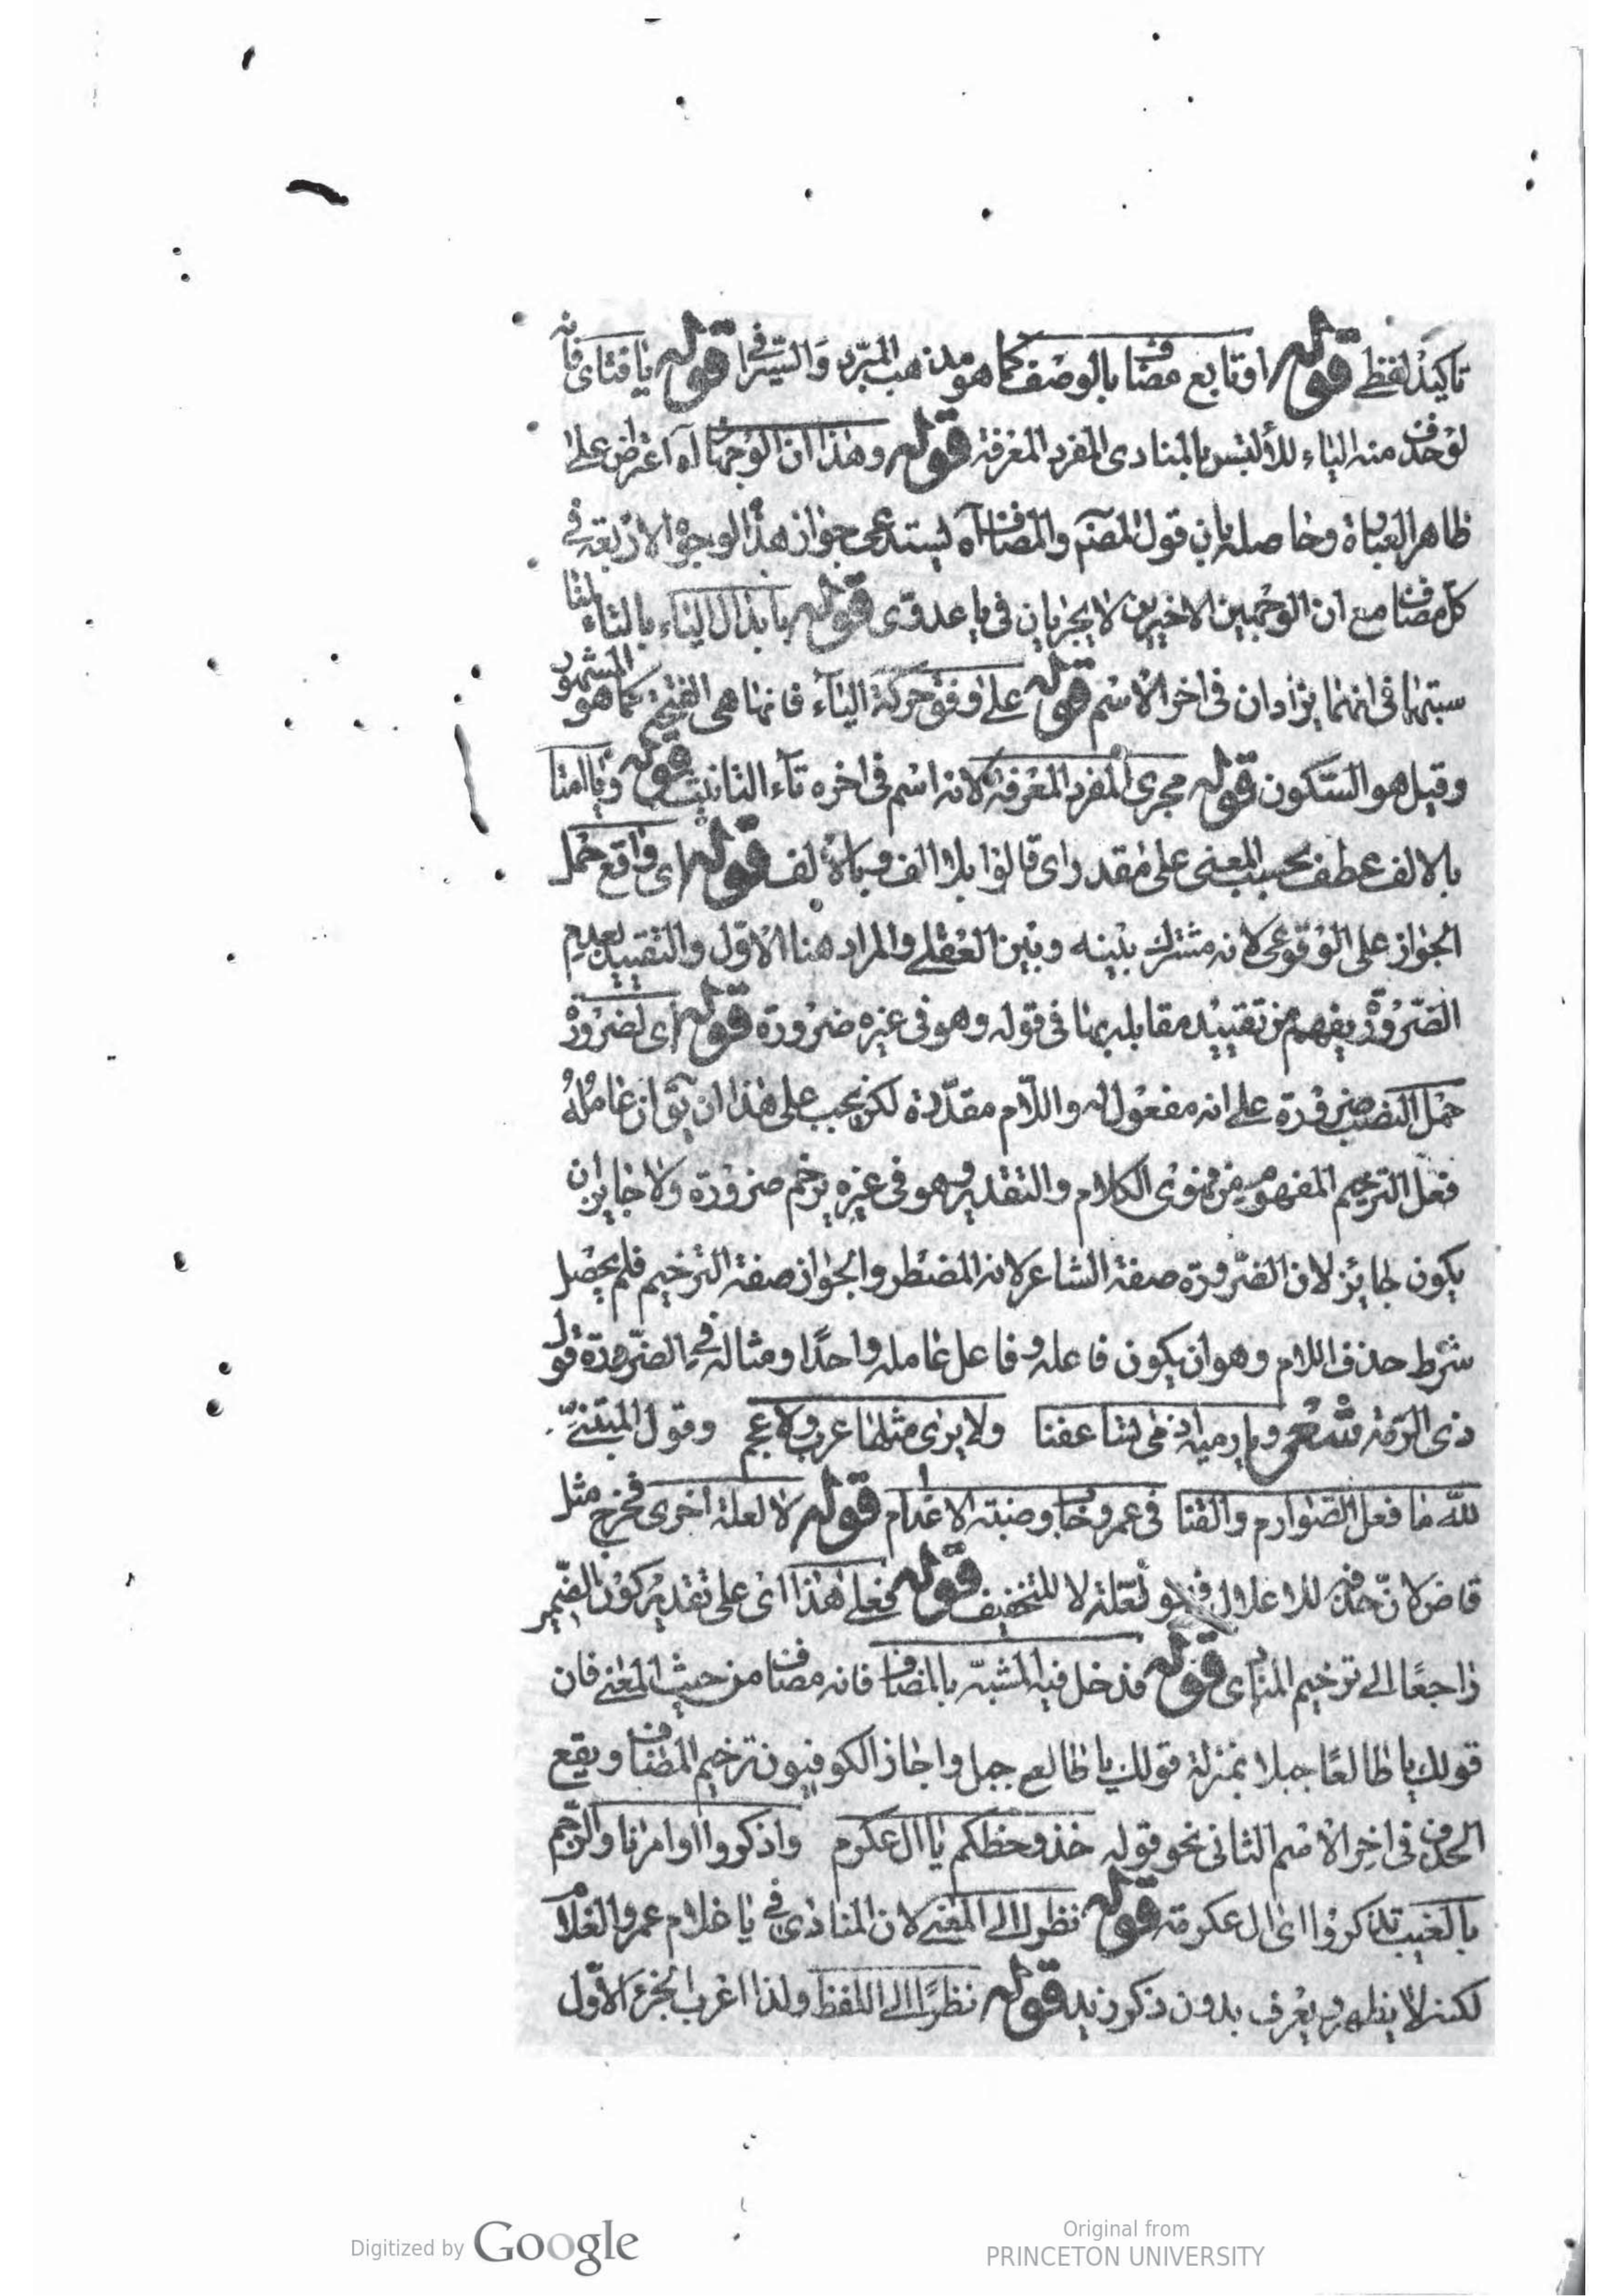 تاكيد لفظي قوله او تابع مضاف بالوصف كما هو مذهب المبرد والسيرافى قوله يا فتاى فانه
لو حذف منه الياء لالتبس بالمنادى المفرد المعرفة قوله وهذان الوجهان آه اعتراض على
ظاهر العبارة وحاصله بان قول المصنم والمضاف آه يستدعى جواز هذه الوجوه الاربعة فى
كل مضاف مع ان الوجهين الاخيرين لا يجريان فى يا عدوى قوله بابدال الياء بالتاء لمنا
سبتها فى انهما يزادان فى اخر الاسم قوله على وفق حركة الياء فانها هى الفتح كما هو المشهور
وقيل هو السكون قوله مجرى المفرد المعرفة لانه اسم فى اخره تاء التانيث قوله وياامتا
بالالف عطف بحسب المعنى على مقدر اى قالوا بلا الف وبالالف قوله اى واقع حمل
الجواز على الوقوعى لانه مشترك بينه وبين العقلى والمراد هنا الاول والتقييد بعدم
الضرورة يفهم من تقييد مقابله بها فى قوله وهو فى غيره ضرورة قوله اى لضرورة
حمل النصب ضرورة على انه مفعول له واللام مقدرة لكن يجب على هذا ان يق ان عامله
فعل الترخيم المفهوم من فحوى الكلام والتقدير وهو فى غيره يرخم ضرورة ولا جايز ان
يكون جايز لان الضرورة صفة الشاعر لانه المضطر والجواز صفة الترخيم فلم يحصل
شرط حذف اللام وهو ان يكون فاعله وفاعل عامله واحدا ومثاله فى الضرورة قول
ذى الرمة شعر ديار مية اذ مى تساعفنا ولا يرى مثلها عرب ولا عجم وقول المتنبى
لله ما فعل الصوارم والقنا فى عمرو حاب وضبة الاغتام قوله لا لعلة اخرى فخرج مثل
قاض لان حذفه للاعلال فهو لعلة لا للتخفيف قوله فعلى هذا اى على تقدير كون الضمير
راجعا الى ترخيم المنادى قوله فدخل فيه المشبه بالمضاف فانه مضاف من حيث المعنى فان
قولك يا طالعا جبلا بمنزلة قولك يا طالع جبل واجاز الكوفيون ترخيم المضاف ويقع
الحذف فى اخر الاسم الثانى نحو قوله خذو حظكم يا ال عكرم واذكروا اوامرنا والرحم
بالغيب تذكروا اى ال عكرمة قوله نظرا الى المعنى لان المنادى فى يا غلام عمرو الغلام
لكنه لا يظهر ويعرف بدون ذكر زيد قوله نظرا الى اللفظ ولذا اعرب الجزء الاول
Digitized by Google
Original from
PRINCETON UNIVERSITY